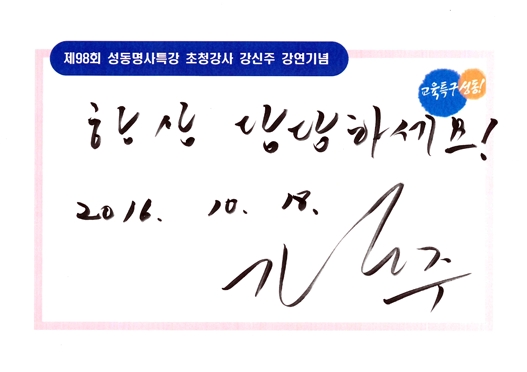 제98회 성동명사특강 초청강사 강신주 강연기념
교육특구 성동!
항상 당당하세요!
2016. 10. 18.
강신주